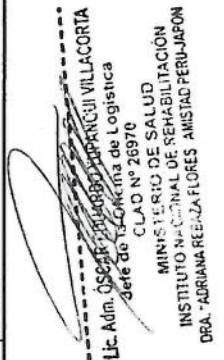 Lic. Adm. ÓSCAR EDUARDO YUPANQUI VILLACORTA
Jefe de la Oficina de Logística
CLAD N° 26970
MINISTERIO DE SALUD
INSTITUTO NACIONAL DE REHABILITACIÓN
DRA. "ADRIANA REBAZA FLORES AMISTAD PERU-JAPON